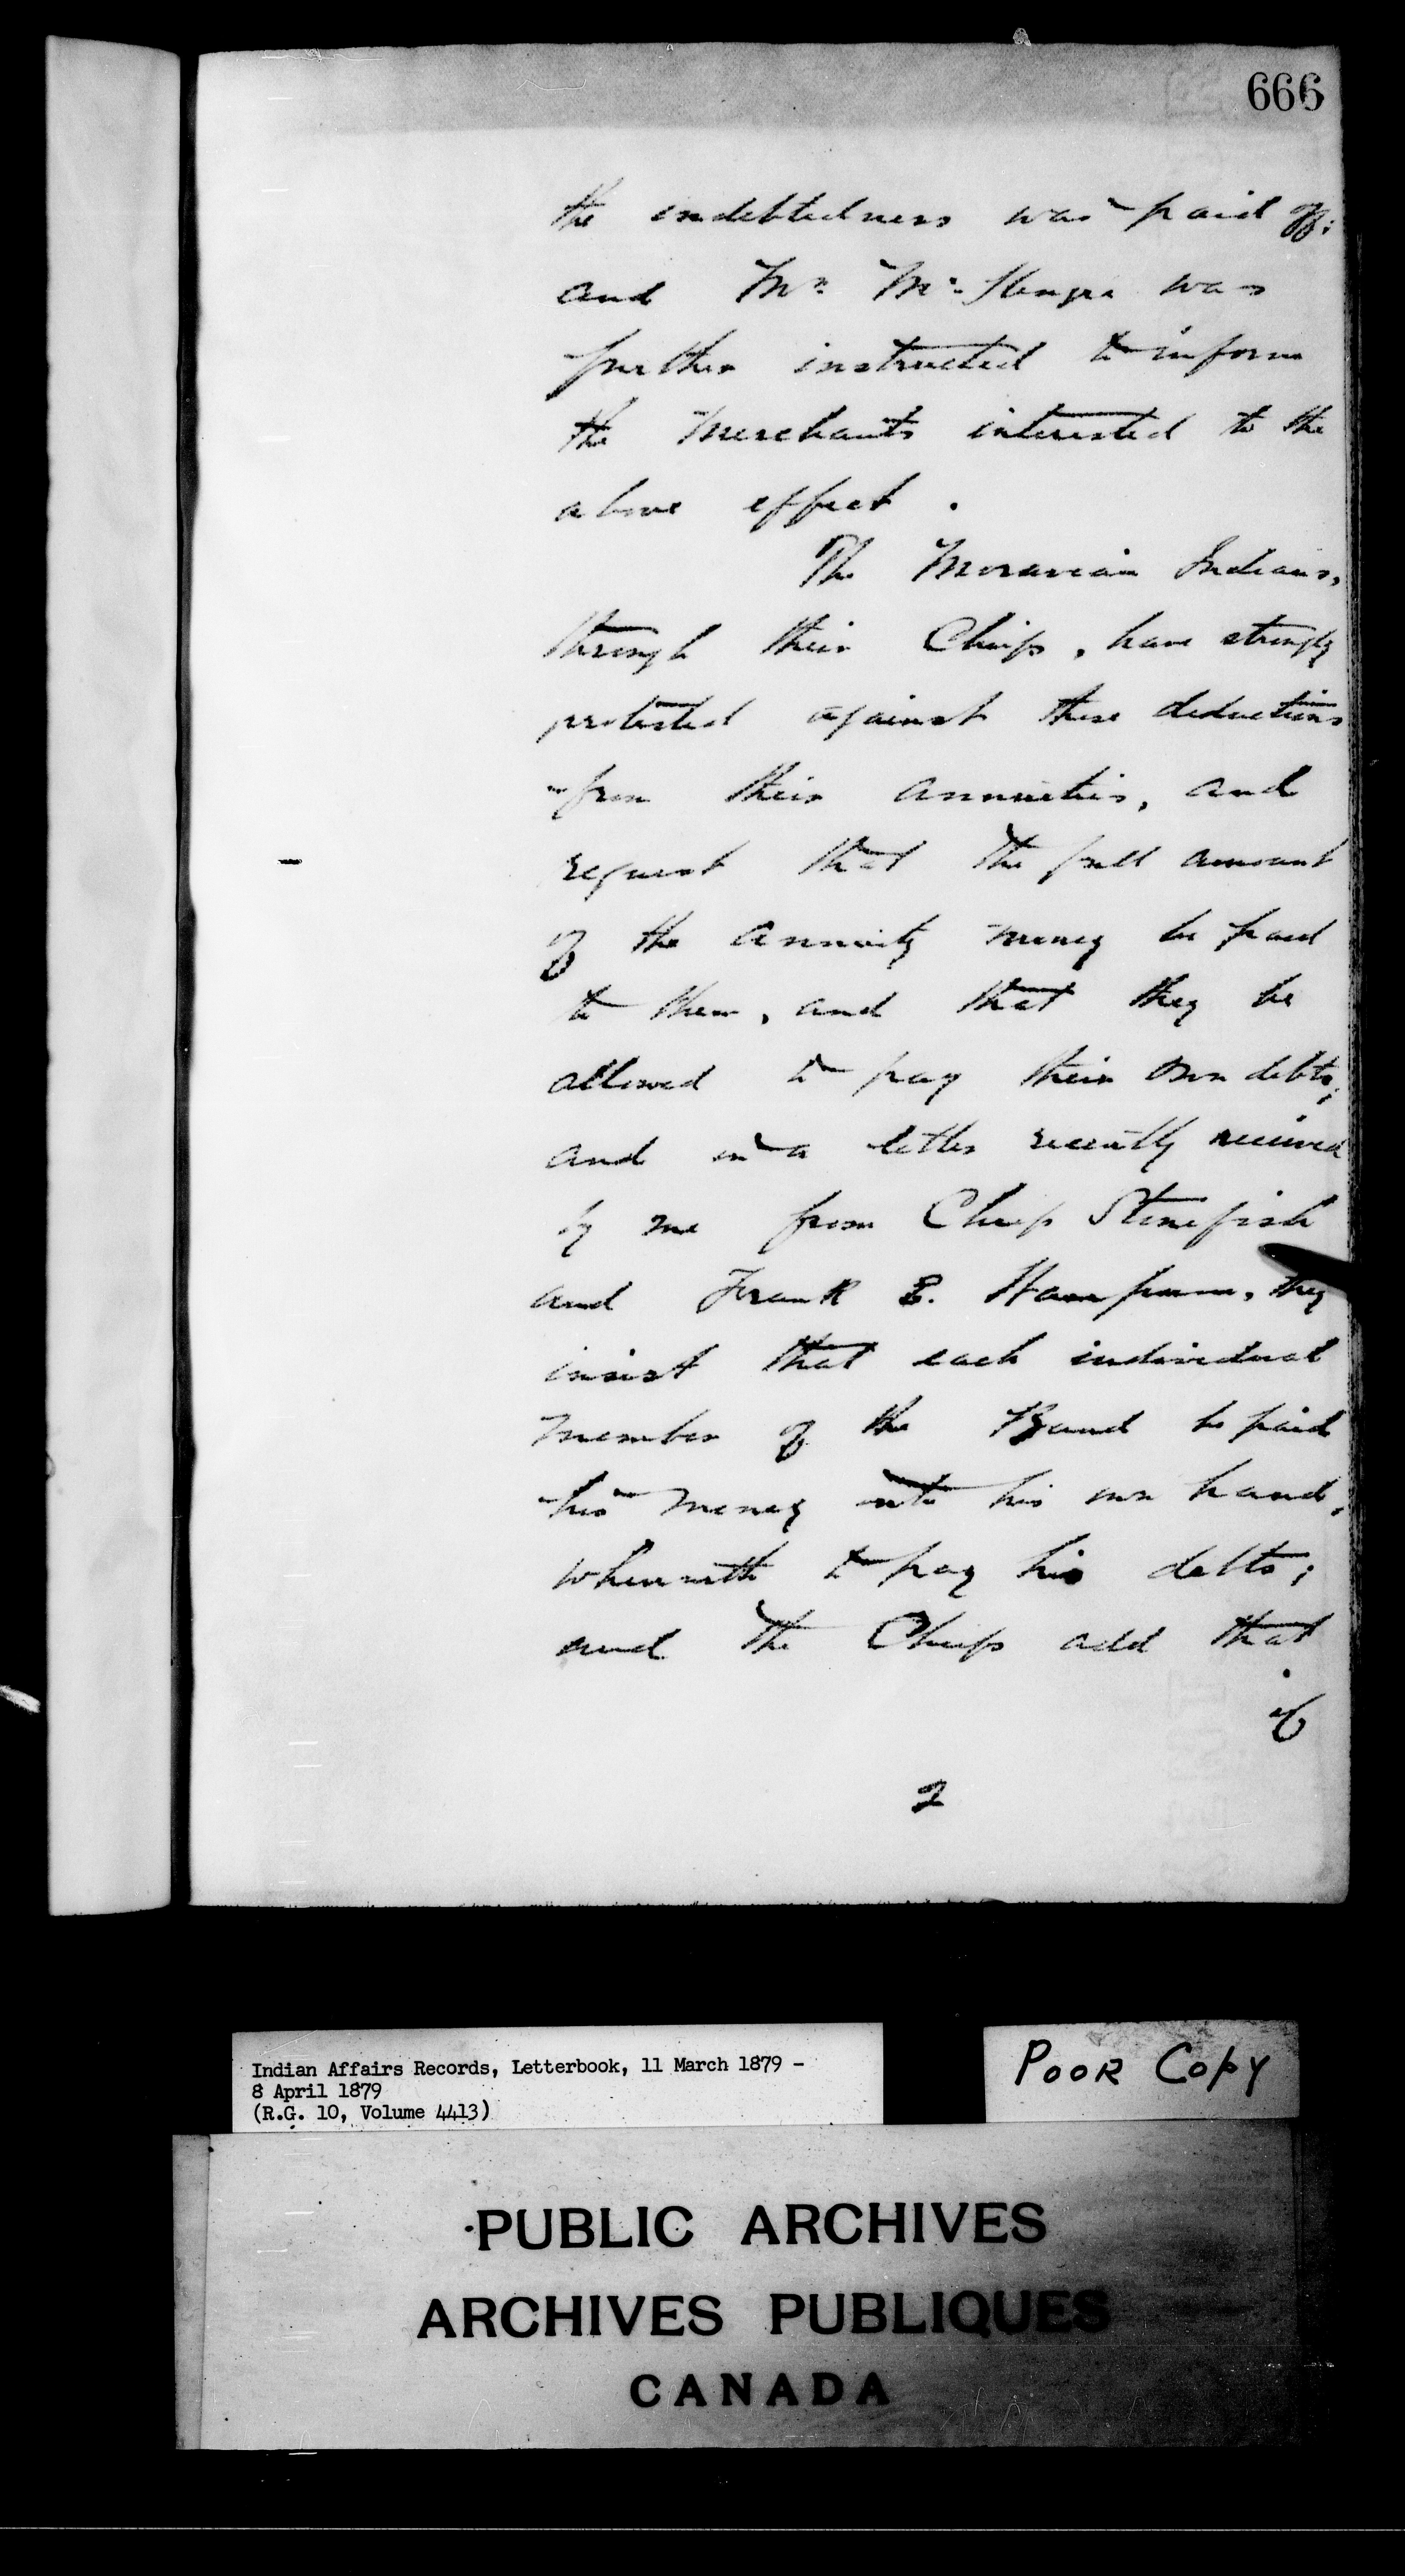 666
the indebtedness was paid off;
and Mr. Mc was
further instructed to inform
the Merchants interested to the
above effect.
The Moravian Indians,
through their Chiefs, have strongly
protested against these deductions
from their annuities, and
request that the full amount
of the annuity money be paid
to them, and that they be
allowed to pay their own debts;
and in a letter recently received
by me from Chief Stonefish
and Frank E. they
insist that each individual
member of the Band be paid
his money into his own hand,
wherewith to pay his debts;
and the Chiefs add that
if
2
Indian Affairs Records, Letterbook, 11 March 1879 -
8 April 1879
(R.G. 10, Volume 4413)
POOR COPY
PUBLIC ARCHIVES
ARCHIVES PUBLIQUES
CANADA